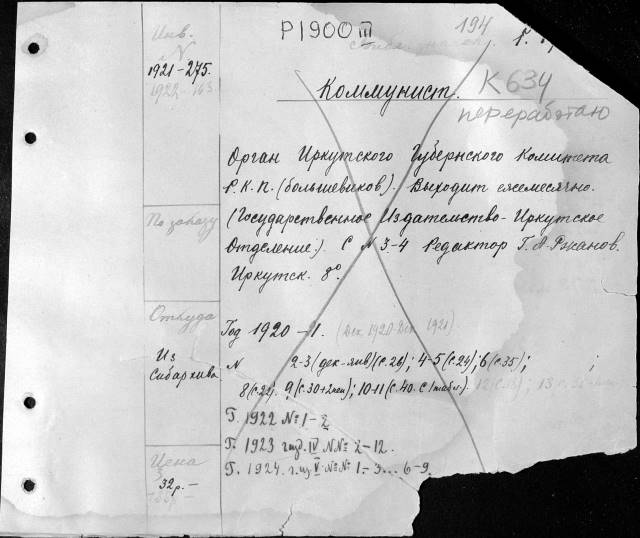 Инв.
N
1921-275.
1922-163
Р1900 III
194
Коммунист.
К 634
переработаю
Орган Иркутского Губернского Комитета
Р.К.П. (большевиков). Выходит ежемесячно.
По заказу
(Государственное Издательство-Иркутское
Отделение). С N 3-4 Редактор Г.А. Ржанов.
Иркутск. 8º.
Откуда
Из
Сибархива
Год 1920-1. (Дек. 1920-Дек. 1921)
N 2-3 (дек-янв)(с.26); 4-5 (с.24); 6 (с.35);
8 (с.22). 9 (с.30+2нен); 10-11 (с.40. с 1 табл.). 12
Г. 1922 № 1-2
Г. 1923 г.изд. IV №№ 2-12.
Г. 1924. г.из V №№ 1-3... 6-9
Цена
32р.-